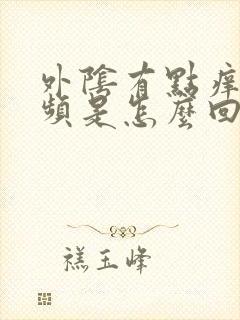 外陰有點痒
頻是怎麼回
禚玉峰